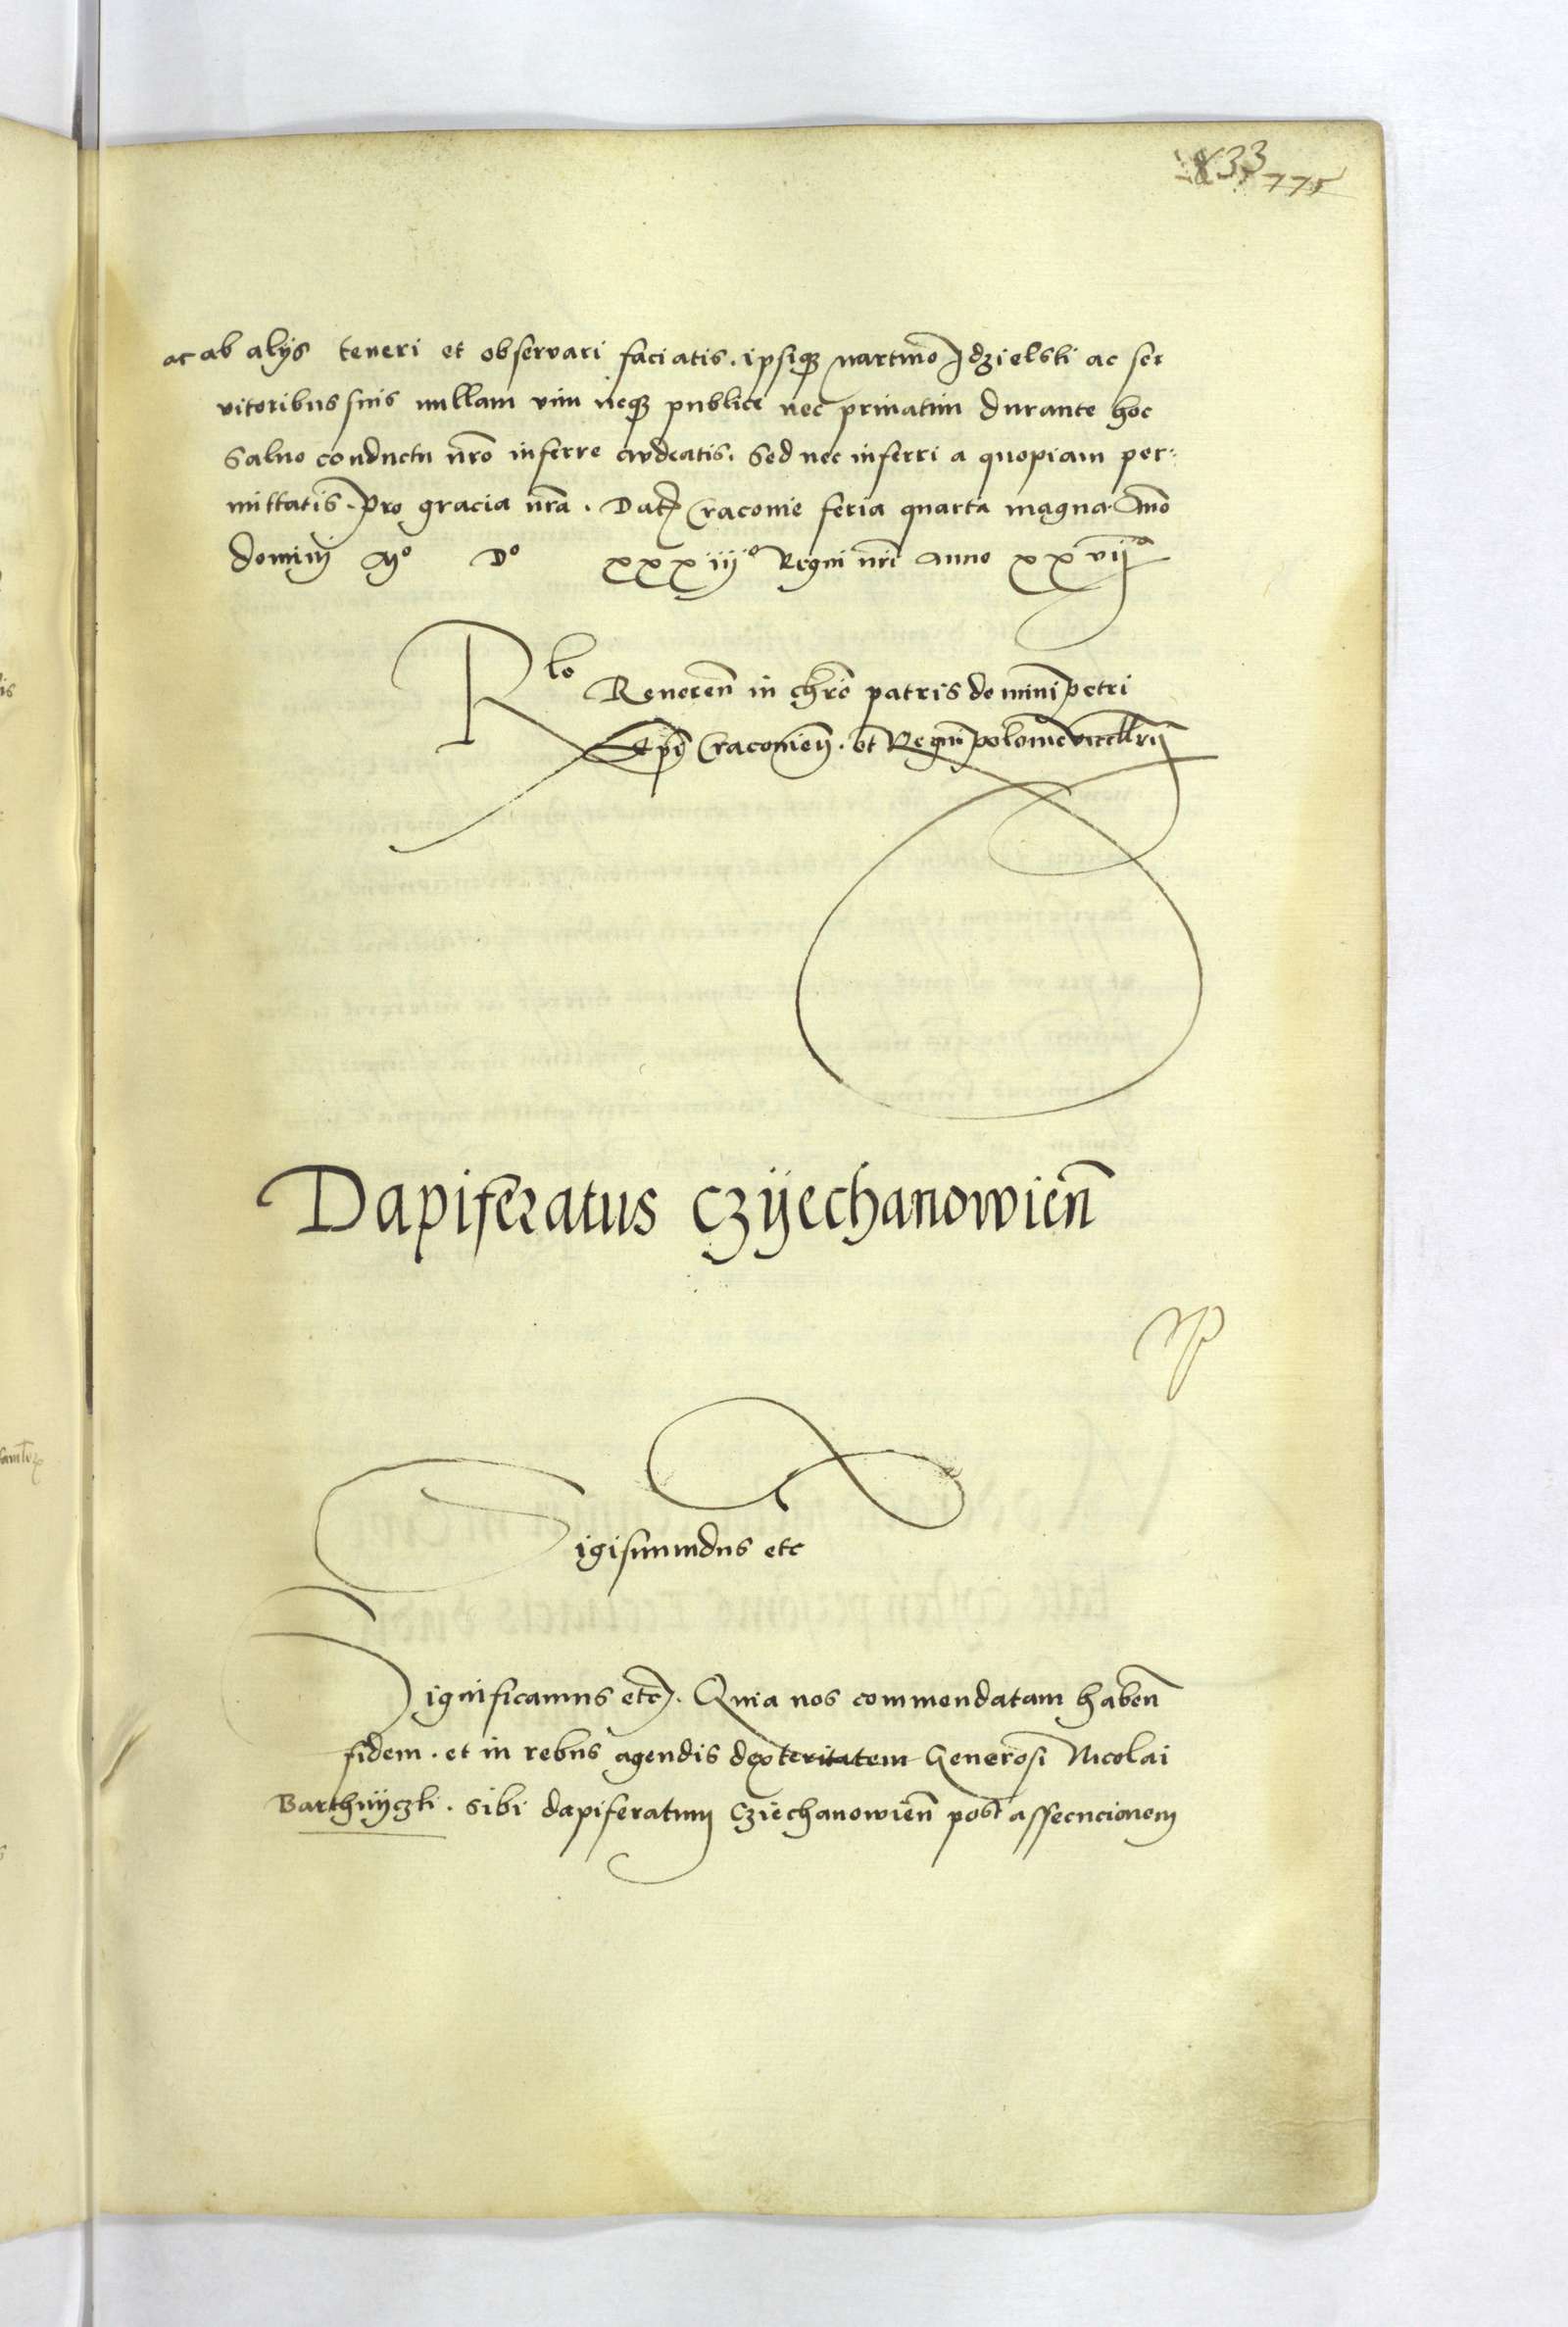 833 775
ac ab alijs teneri et observari faciatis. ipsiq; martino Idzielski ac ser
vitoribus suis nullam vim neq; publice nec privatim durante hoc
salvo conductu nr̄o inferre audeatis. sed nec inferri a quopiam per-
mittatis. pro gracia nr̄a. Dat Cracovie feria quarta magna. Anno
dominj Mº Dº xxxiijº Regni nr̄i anno xxvijº
Rlo Reveren̄ in chr̄o patris domini petri
Epī Cracovien̄. et Regni polonie vicecllrij
Dapiferatus Czÿechanowien̄
Sigismundus etc
Significamus etc. Quia nos commendatam haben̄
fidem. et in rebus agendis dexteritatem Generosi Nicolai
Barthnÿczki. sibi dapiferatum Cziechanowien̄ post assecucionem